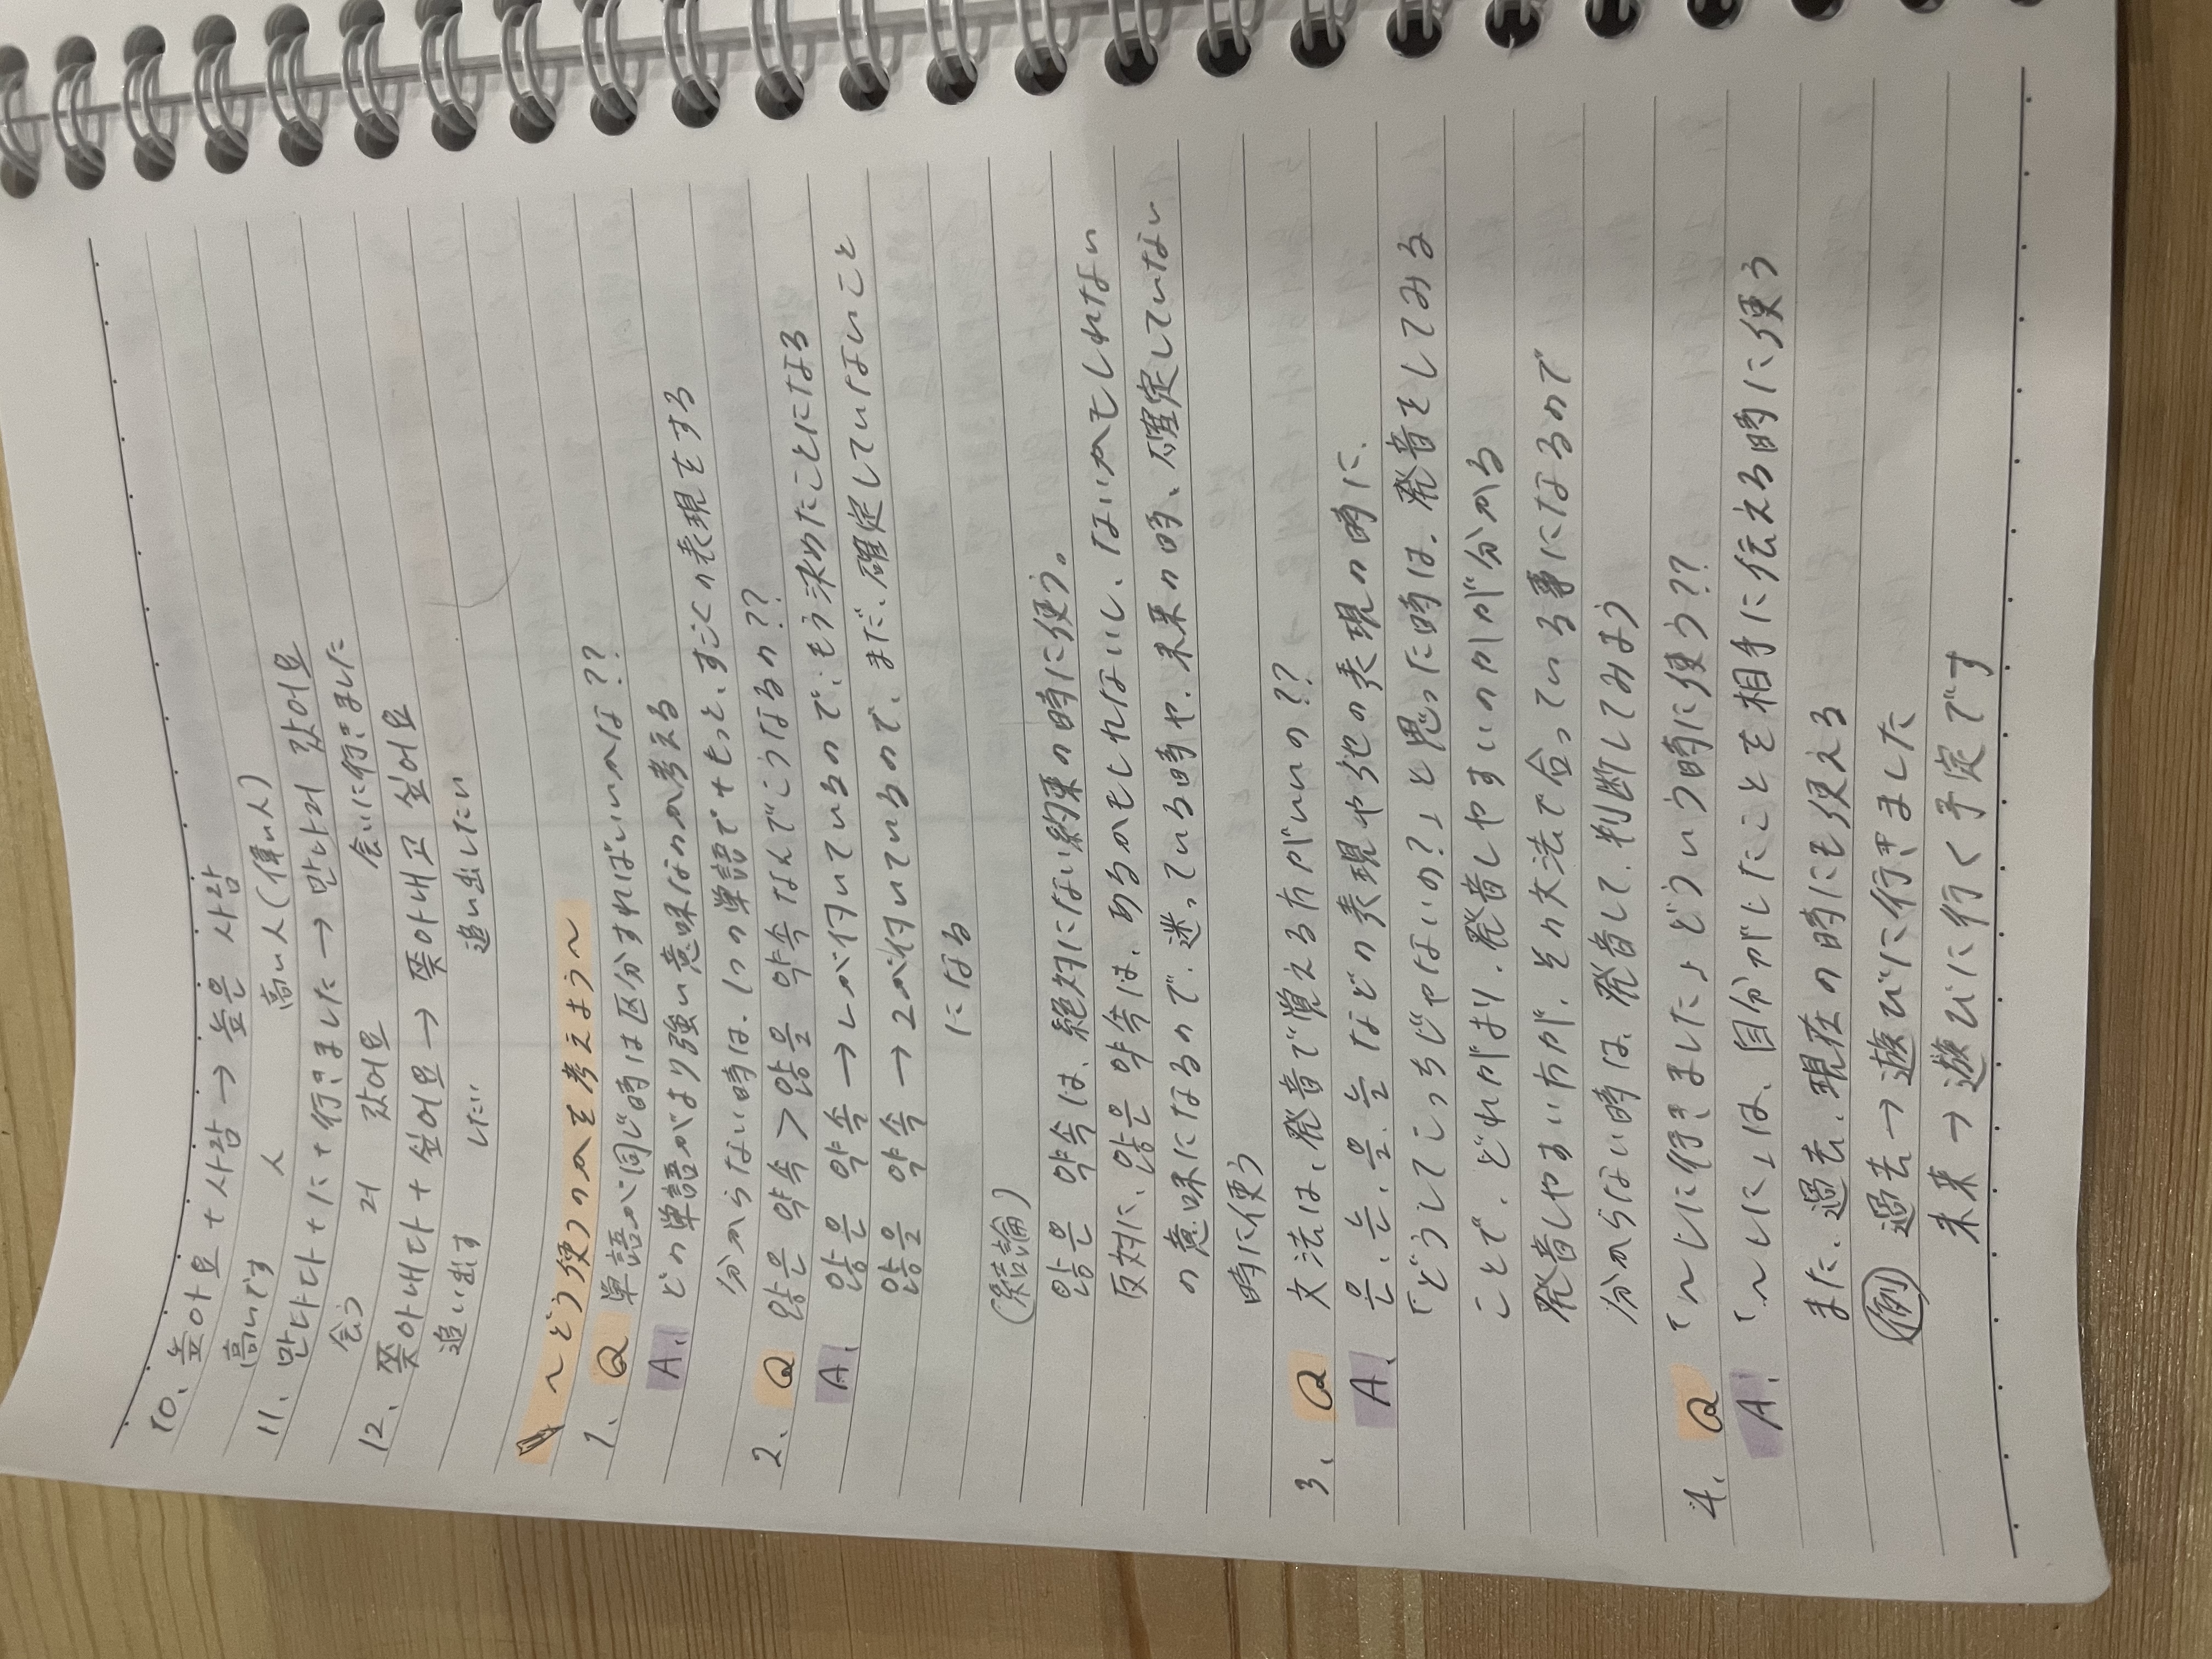 10、높아요 + 사람 → 높은 사람
高いです 人 高い人(偉い人)
11、만나다 + に + 行きました → 만나러 갔어요
会う 러 갔어요 会いに行きました
12、쫓아내다 + 싶어요 → 쫓아내고 싶어요
追い出す したい 追い出したい
〜どう使うのかを考えよう〜
1、Q 単語が同じ時は区分すればいいかな??
A、どの単語がより強い意味なのか考える
分からない時は、1つの単語で+もっと、すごくの表現をする
2、Q 않은 약속 > 않을 약속 なんでこうなるの??
A、않은 약속 → ㄴが付いているので、もう決めたことになる
않을 약속 → ㄹが付いているので、まだ、確定していないこと
になる
(結論)
않은 약속は、絶対にない約束の時に使う。
反対に、않은 약속は、あるかもしれないし、ないかもしれない
の意味になるので、迷っている時や、未来の時、確定していない
時に使う
3、Q 文法は、発音で覚える方がいいの??
A、은、는、을、늘 などの表現や他の表現の時に、
「どうしてこっちじゃないの?」と思った時は、発音をしてみる
ことで、どれがより、発音しやすいのかが分かる
発音しやすい方が、その文法で合っている事になるので
分からない時は、発音して、判断してみよう
4、Q 「〜しに行きました」どういう時に使う??
A、「〜しに」は、自分がしたことを相手に伝える時に使う
また、過去、現在の時にも使える
例 過去 → 遊びに行きました
未来 → 遊びに行く予定です